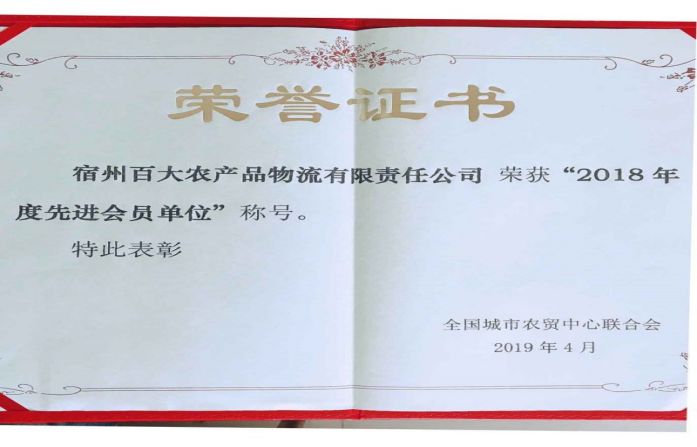 荣誉证书
宿州百大农产品物流有限责任公司 荣获“2018年
度先进会员单位”称号。
特此表彰
全国城市农贸中心联合会
2019年4月